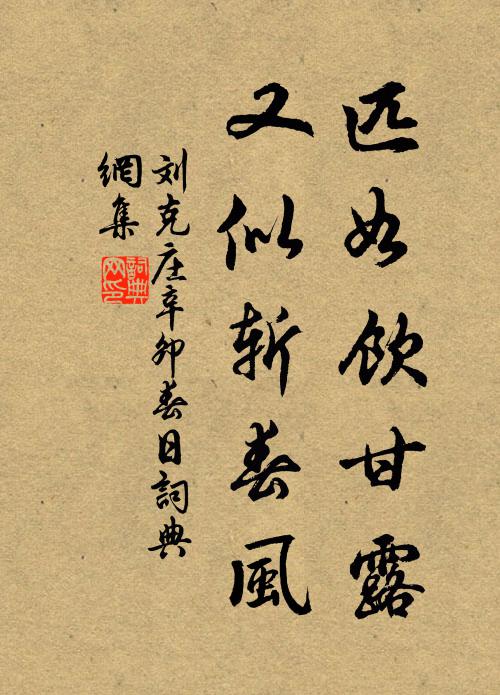 匹如飲甘露
又似斬春風
刘克庄辛卯春日詞典
網集
詞典
网印